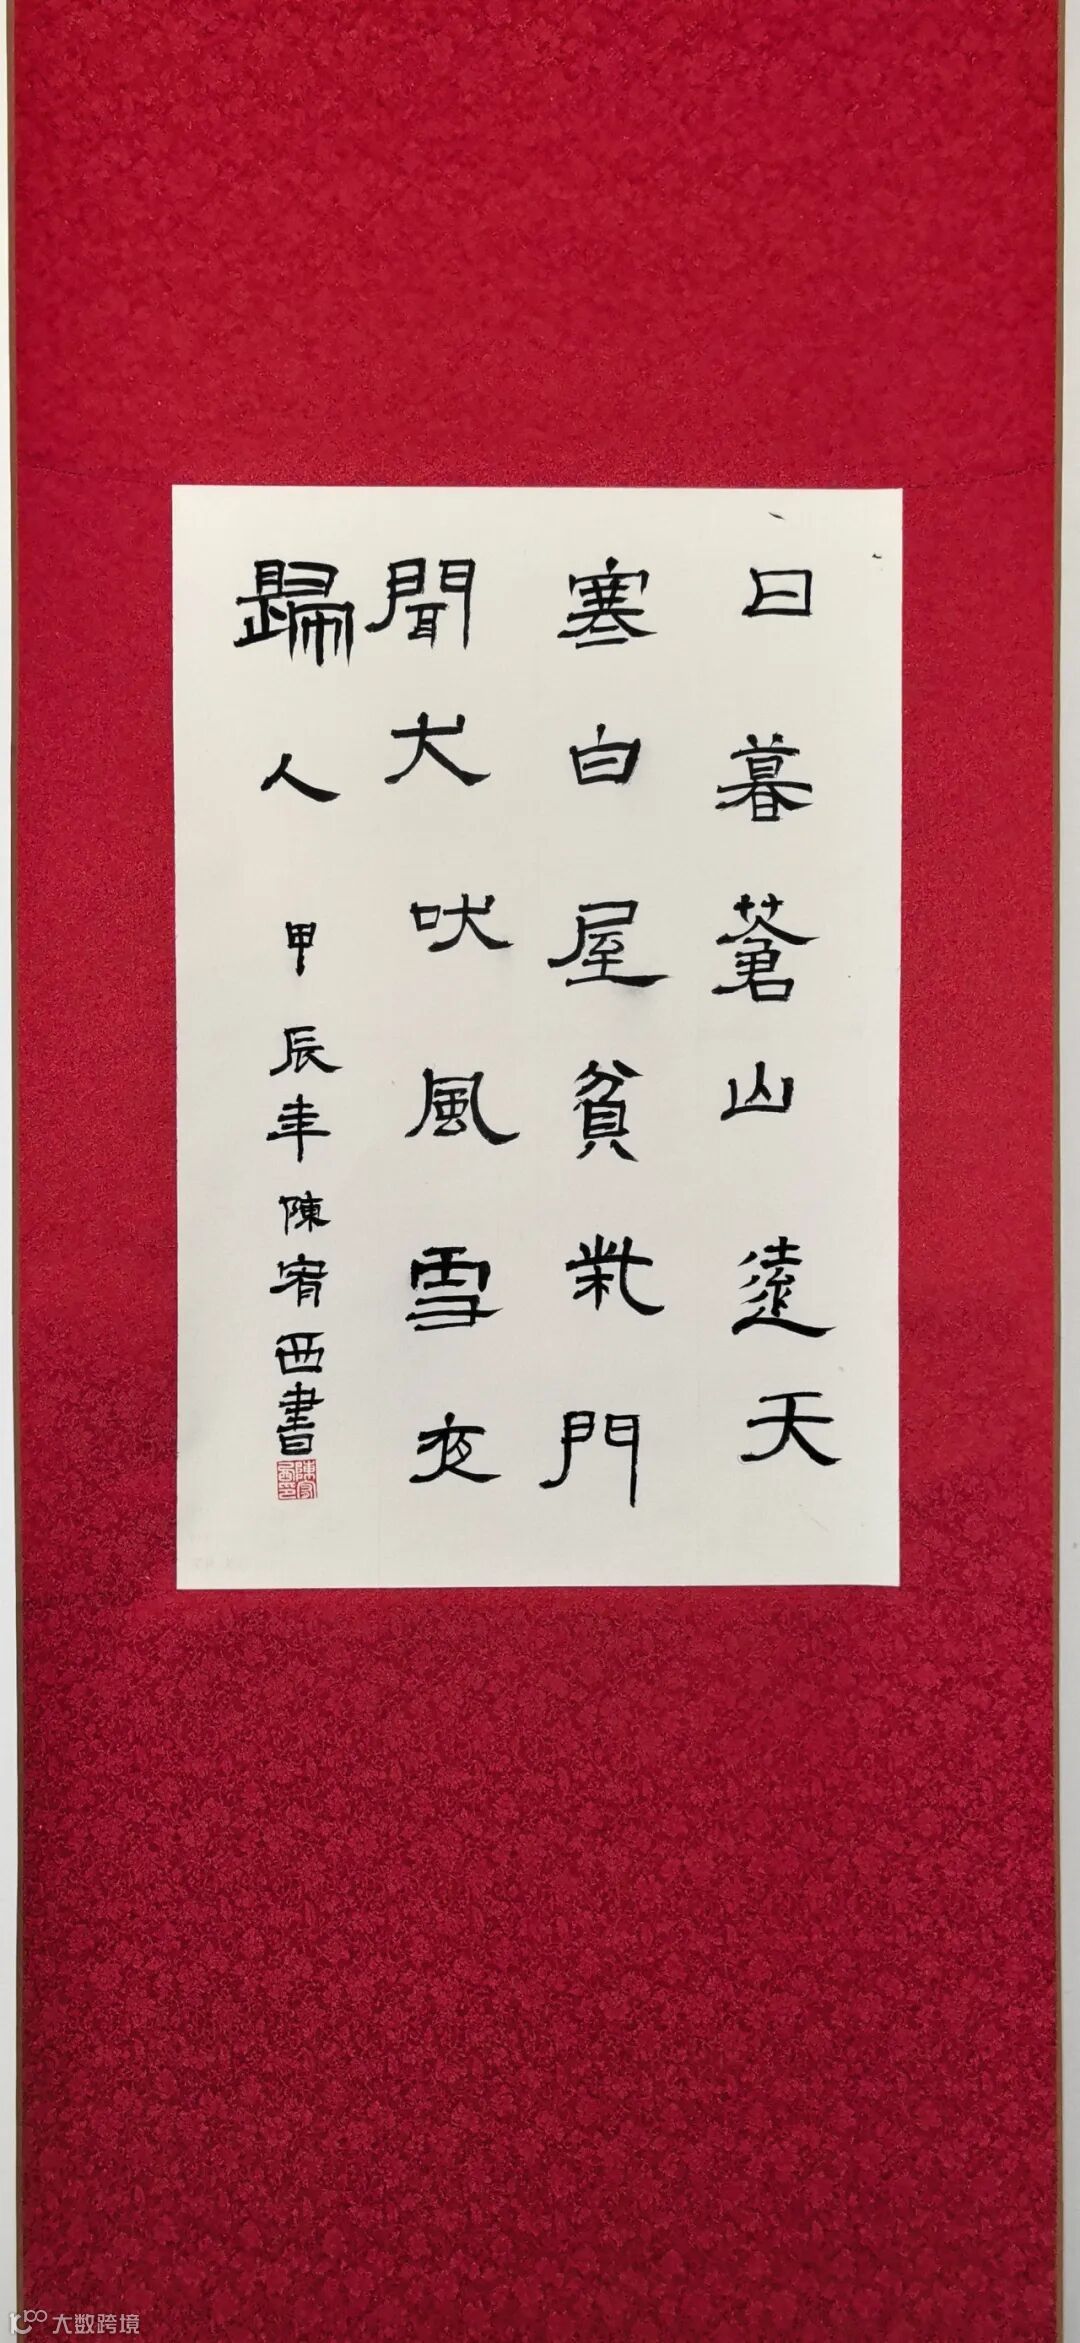 日暮蒼山遠天
寒白屋貧柴門
聞犬吠風雪夜
歸人
甲辰年陳宥西書
大数跨境